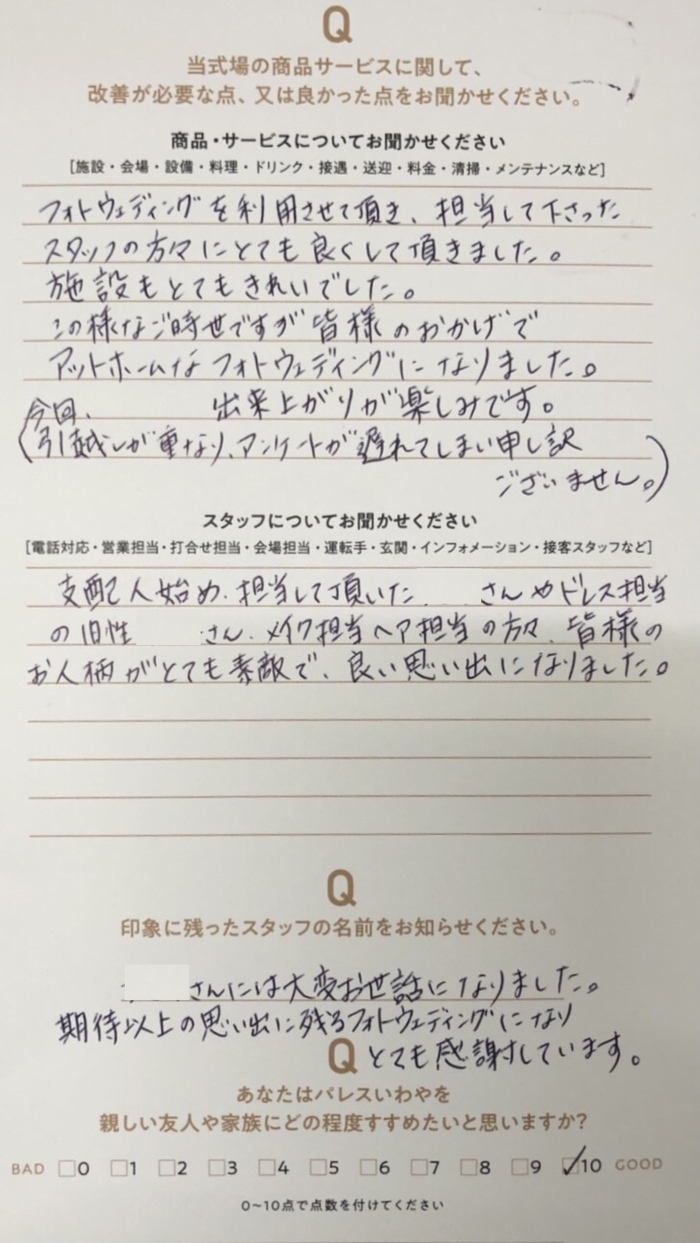 Q
当式場の商品サービスに関して、
改善が必要な点、又は良かった点をお聞かせください。
商品・サービスについてお聞かせください
[施設・会場・設備・料理・ドリンク・接遇・送迎・料金・清掃・メンテナンスなど]
フォトウェディングを利用させて頂き、担当して下さった
スタッフの方々にとても良くして頂きました。
施設もとてもきれいでした。
この様なご時世ですが皆様のおかげで
アットホームなフォトウェディングになりました。
出来上がりが楽しみです。
(今回、
引越しが重なり、アンケートが遅れてしまい申し訳
ございません。)
スタッフについてお聞かせください
[電話対応・営業担当・打合せ担当・会場担当・運転手・玄関・インフォメーション・接客スタッフなど]
支配人始め、担当して頂いた さんやドレス担当
の旧性 さん、メイク担当ヘア担当の方々、皆様の
お人柄がとても素敵で、良い思い出になりました。
Q
印象に残ったスタッフの名前をお知らせください。
さんには大変お世話になりました。
期待以上の思い出に残るフォトウェディングになり
とても感謝しています。
Q
あなたはパレスいわやを
親しい友人や家族にどの程度すすめたいと思いますか?
BAD □0 □1 □2 □3 □4 □5 □6 □7 □8 □9 ✓10 GOOD
0~10点で点数を付けてください